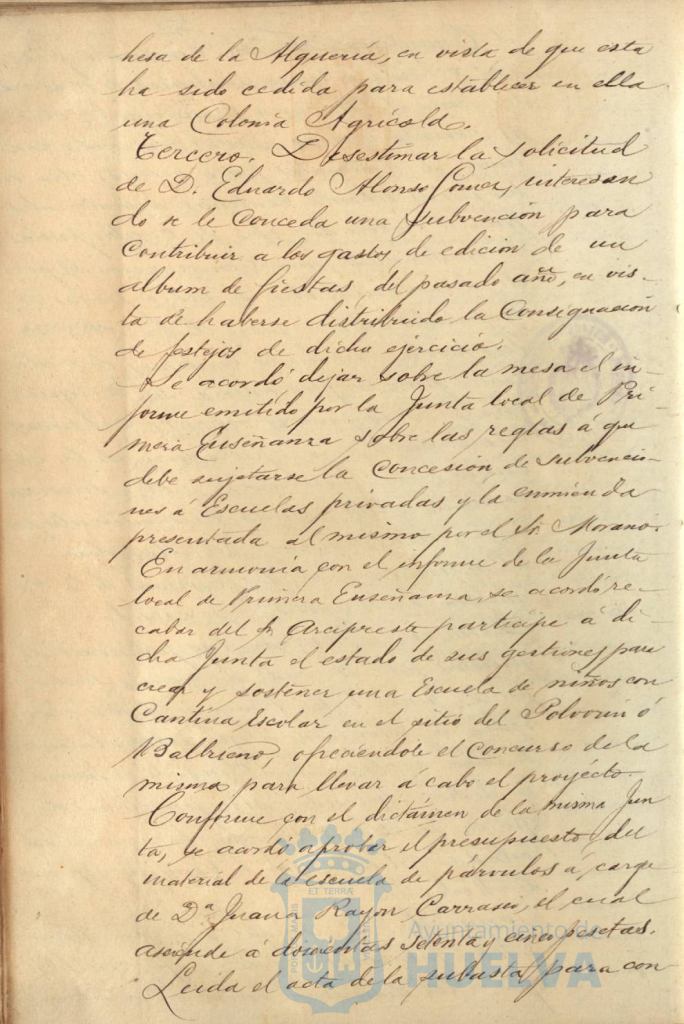 hesa de la Alquería, en vista de que esta
ha sido cedida para establecer en ella
una Colonia Agrícola.
Tercero. Desestimar la solicitud
de D. Eduardo Alonso Gomez, interesan
do se le conceda una subvención para
contribuir á los gastos de edición de un
album de fiestas, del pasado año, en vis-
ta de haberse distribuido la Consignación
de festejos de dicho ejercicio.
Se acordó dejar sobre la mesa el in-
forme emitido por la Junta local de Pri-
mera Enseñanza sobre las reglas á que
debe sujetarse la concesión de subvencio-
nes á Escuelas privadas y la enmienda
presentada al mismo por el Sr. Morano.
En armonía con el informe de la Junta
local de Primera Enseñanza, se acordó re-
cabar del Sr. Arcipreste participe á di-
cha Junta el estado de sus gestiones para
crear y sostener una Escuela de niños con
Cantina Escolar en el sitio del Polvorin ó
Balbueno, ofreciéndole el concurso de la
misma para llevar á cabo el proyecto.
Conforme con el dictámen de la misma Jun
ta, se acordó aprobar el presupuesto del
material de la escuela de párvulos á cargo
de Dª Juana Rayon Carrasco, el cual
asciende á doscientas setenta y cinco pesetas.
Leida el acta de la subasta para con
ET TERRA
Ayuntamiento de
HUELVA